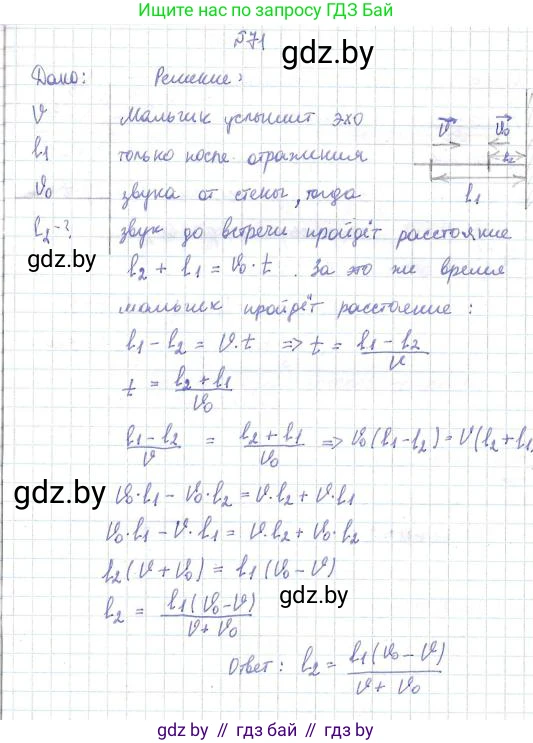 Ищите нас по запросу ГДЗ Бай
№71
gdz.by
Дано: Решение:
V
l1
V0
l2-?
Мальчик услышит эхо
только после отражения
звука от стены, тогда
звук до встречи пройдёт расстояние
l2 + l1 = V0 · t . За это же время
мальчик пройдёт расстояние :
V V0
l2
l1
gdz.by
l1 − l2 = V·t => t = (l1 − l2)/V
t = (l2 + l1)/V0
(l1 − l2)/V = (l2 + l1)/V0 => V0(l1−l2) = V(l2+l1
gdz.by
V0·l1 − V0·l2 = V·l2 + V·l1
V0·l1 − V·l1 = V·l2 + V0·l2
l2(V+V0) = l1(V0−V)
gdz.by
l2 = l1(V0−V)/(V+V0)
Ответ: l2 = l1(V0−V)/(V+V0)
gdz.by // гдз бай // gdz.by